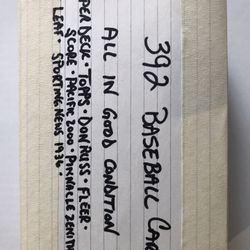 392 BASEBALL CAR
ALL IN GOOD CONDITION
PER DECK • TOPPS • DONRUSS • FLEER •
SCORE • PACIFIC 2000 • PINNACLE ZENITH
LEAF • SPORTING NEWS 1936 •